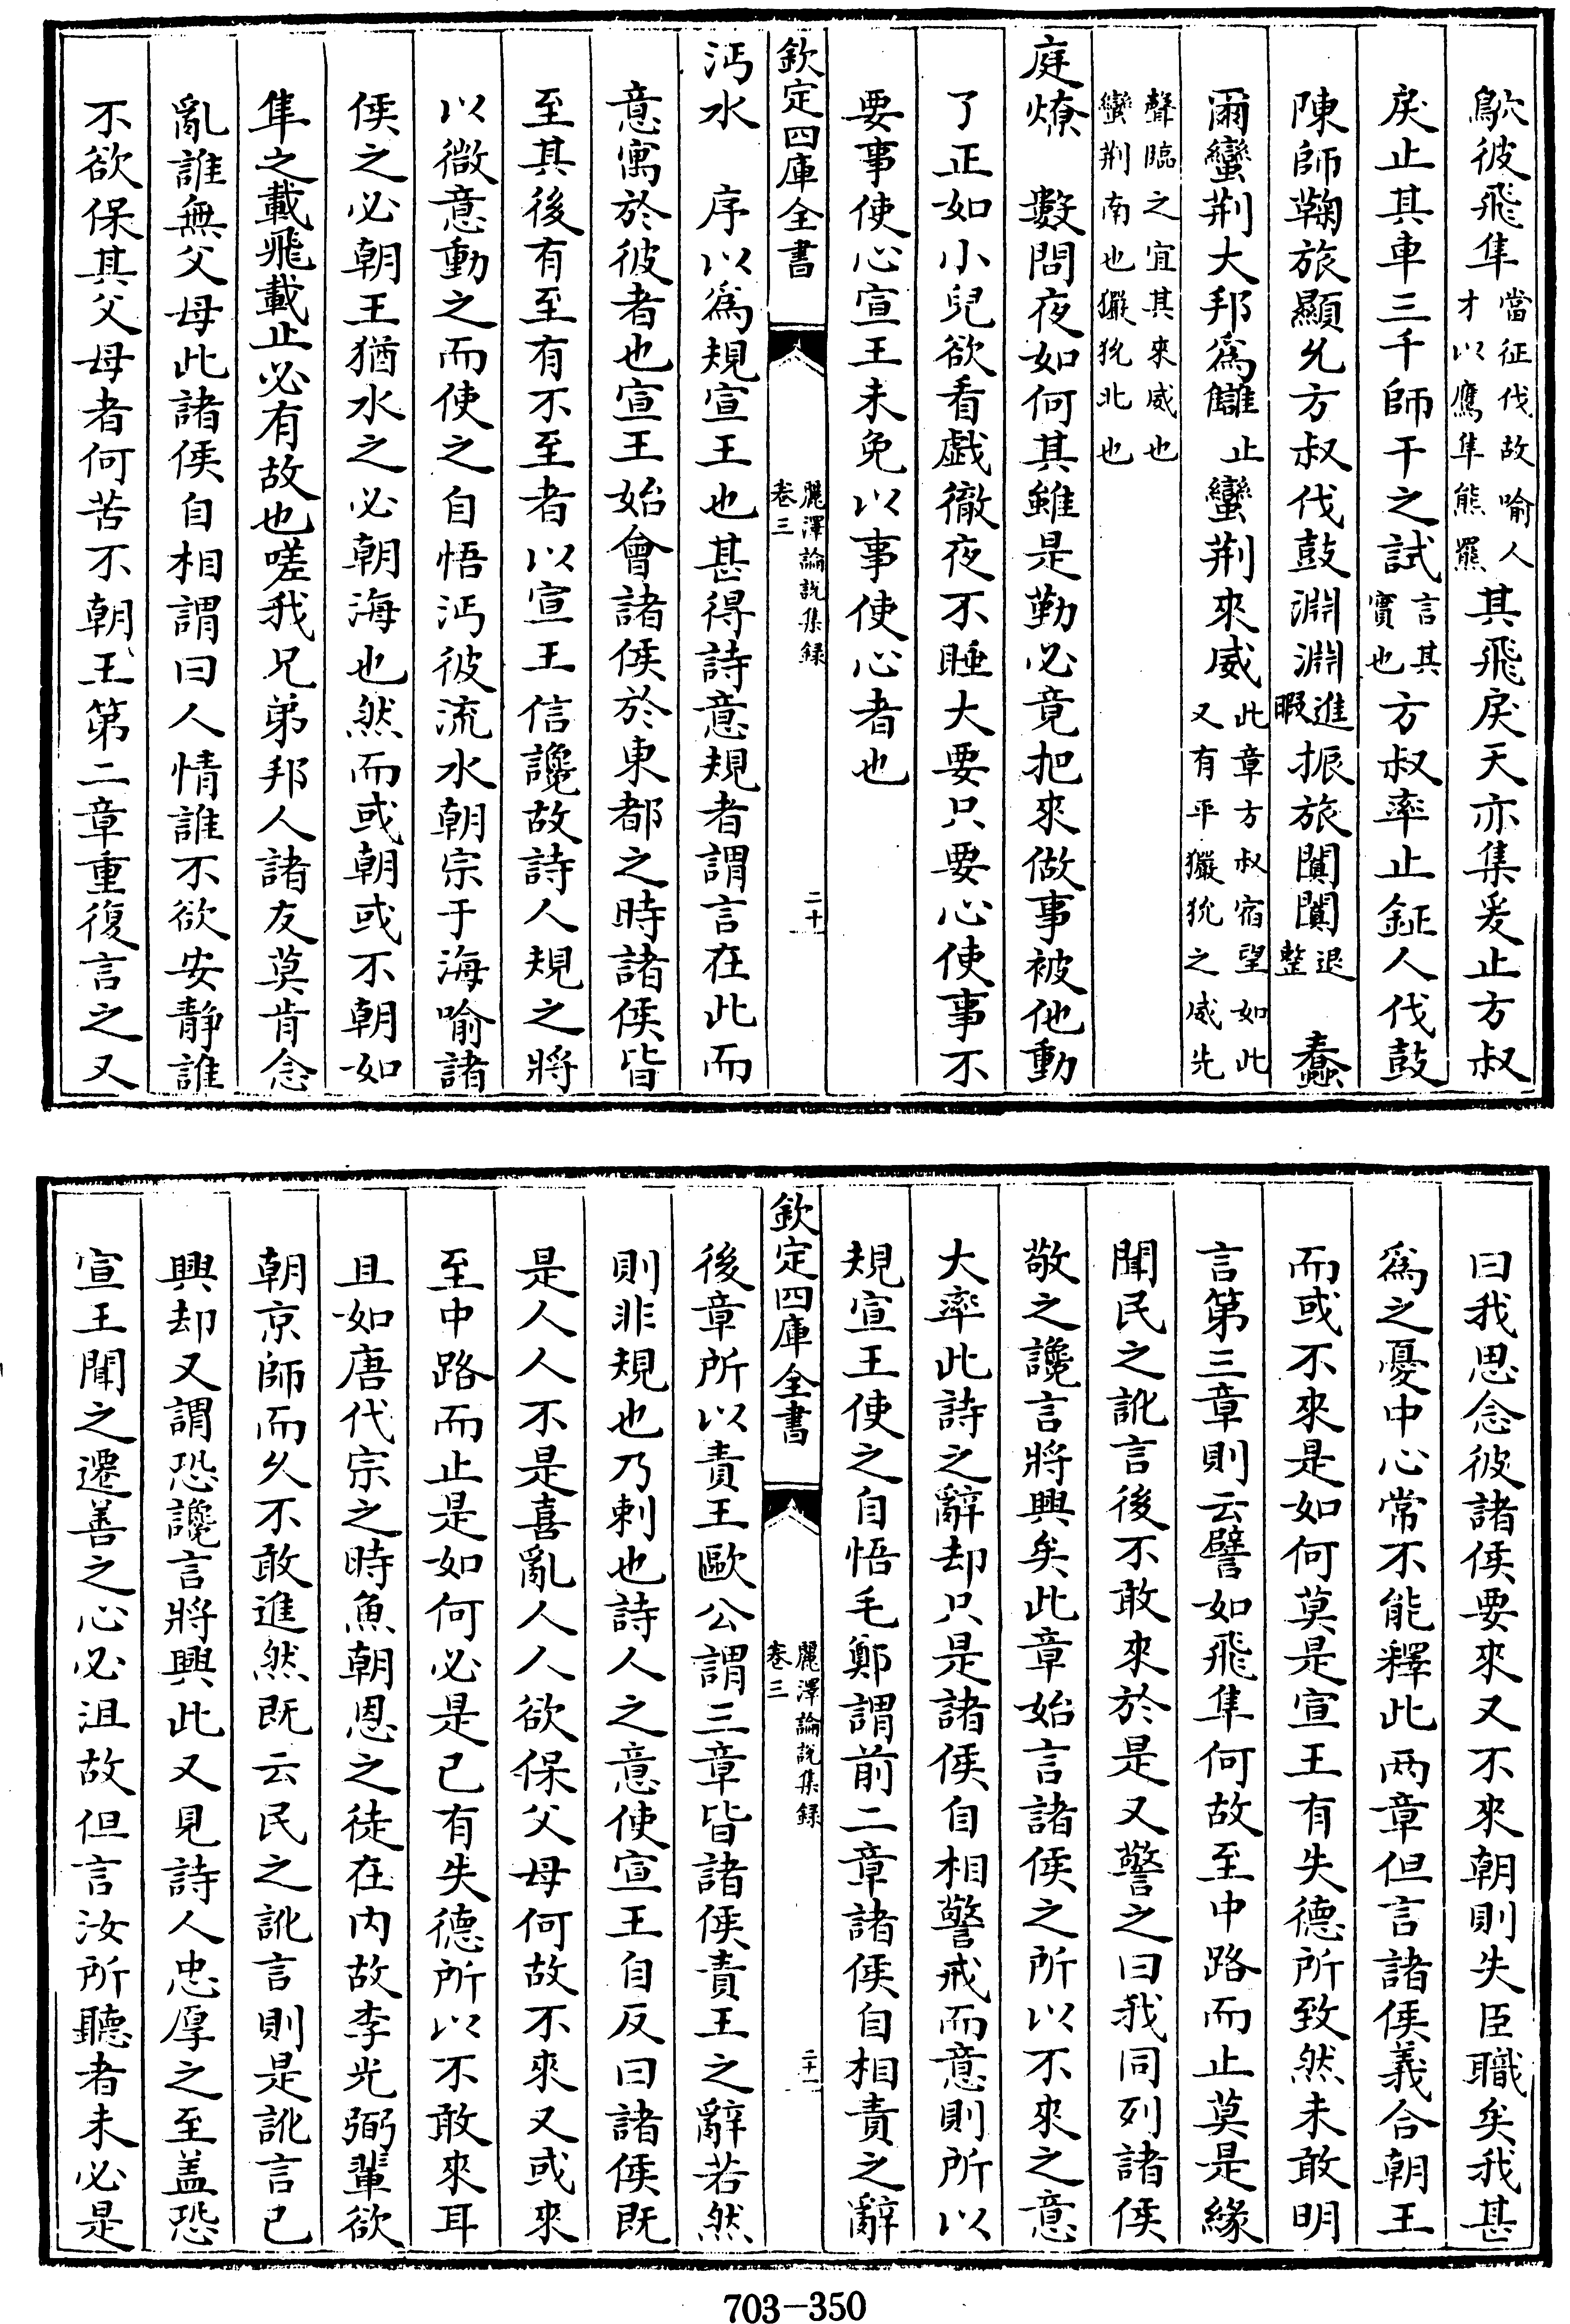 鴥彼飛隼當征伐故喻人才以鷹隼熊羆其飛戾天亦集爰止方叔
戾止其車三千師干之試言其實也方叔率止鉦人伐鼓
陳師鞠旅顯允方叔伐鼓淵淵進暇振旅闐闐退整　蠢
爾蠻荆大邦爲讎止蠻荆來威此章方叔宿望如此又有平玁狁之威先
聲臨之宜其來威也蠻荆南也玁狁北也
庭燎　數問夜如何其雖是勤必竟把來做事被他動
了正如小兒欲看戲徹夜不睡大要只要心使事不
要事使心宣王未免以事使心者也
欽定四庫全書　麗澤論説集録卷三　二十
沔水　序以爲規宣王也甚得詩意規者謂言在此而
意寓於彼者也宣王始會諸侯於東都之時諸侯皆
至其後有至有不至者以宣王信讒故詩人規之將
以微意動之而使之自悟沔彼流水朝宗于海喻諸
侯之必朝王猶水之必朝海也然而或朝或不朝如
隼之載飛載止必有故也嗟我兄弟邦人諸友莫肯念
亂誰無父母此諸侯自相謂曰人情誰不欲安静誰
不欲保其父母者何苦不朝王第二章重復言之又
曰我思念彼諸侯要來又不來朝則失臣職矣我甚
爲之憂中心常不能釋此两章但言諸侯義合朝王
而或不來是如何莫是宣王有失德所致然未敢明
言第三章則云譬如飛隼何故至中路而止莫是緣
聞民之訛言後不敢來於是又警之曰我同列諸侯
敬之讒言將興矣此章始言諸侯之所以不來之意
大率此詩之辭却只是諸侯自相警戒而意則所以
規宣王使之自悟毛鄭謂前二章諸侯自相責之辭
欽定四庫全書　麗澤論説集録卷三　二十一
後章所以責王歐公謂三章皆諸侯責王之辭若然
則非規也乃刺也詩人之意使宣王自反曰諸侯既
是人人不是喜亂人人欲保父母何故不來又或來
至中路而止是如何必是已有失德所以不敢來耳
且如唐代宗之時魚朝恩之徒在内故李光弼輩欲
朝京師而久不敢進然既云民之訛言則是訛言已
興却又謂恐讒言將興此又見詩人忠厚之至盖恐
宣王聞之遷善之心必沮故但言汝所聽者未必是
703-350